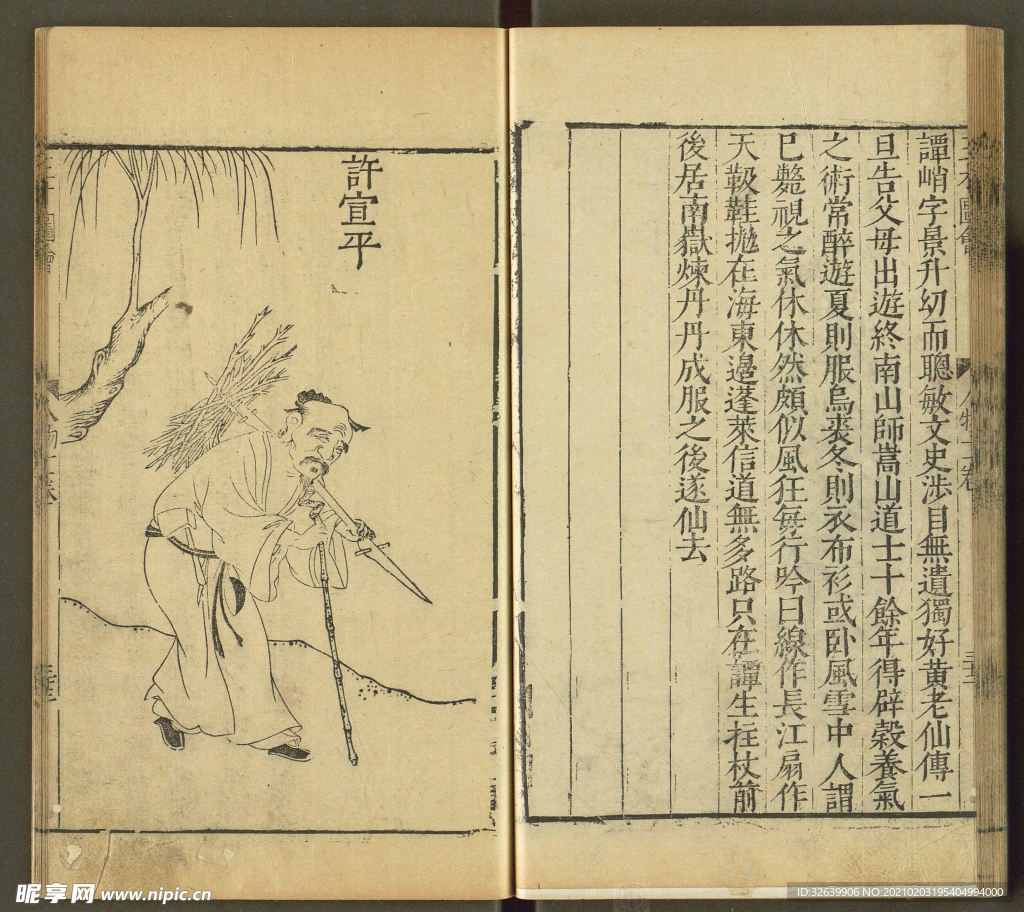 譚峭字景升幼而聰敏文史涉目無遺獨好黃老仙傳一
旦告父母出遊終南山師嵩山道士十餘年得辟穀養氣
之術常醉遊夏則服烏裘冬則衣布衫或卧風雪中人謂
巳斃視之氣休休然頗似風狂每行吟曰線作長江扇作
天靸鞋抛在海東邊蓬萊信道無多路只在譚生拄杖前
後居南嶽煉丹丹成服之後遂仙去
許宣平
昵享网 www.nipic.cn
ID:32639906 NO:20210203195404994000